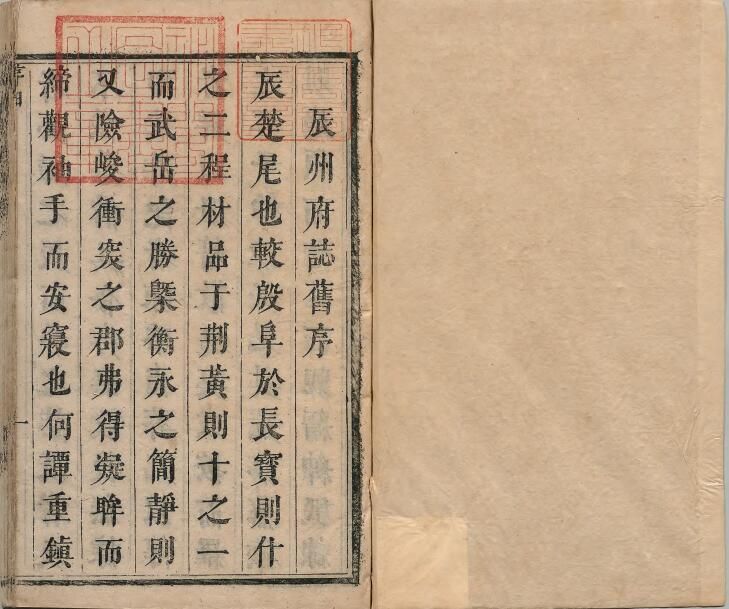 辰州府誌舊序
辰楚尾也較殷阜於長寶則什
之二程材品于荆黄則十之一
而武岳之勝槩衡永之簡靜則
又險峻衝突之郡弗得凝眸而
締觀袖手而安寢也何譚重鎮
序
一